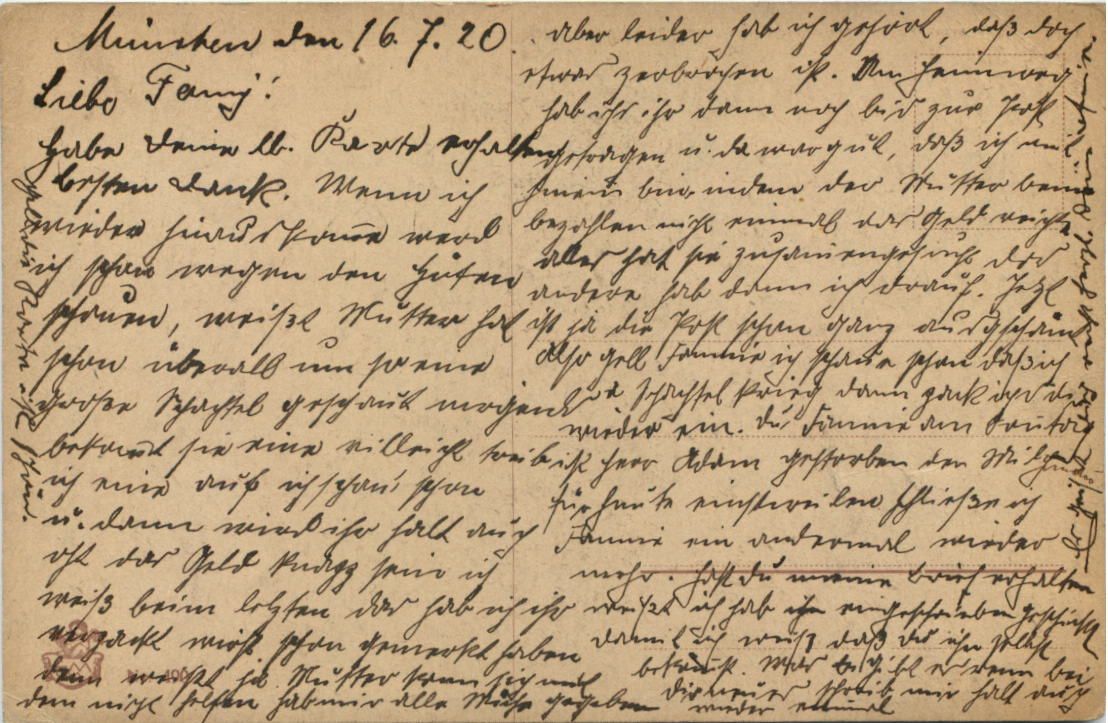 München den 16.7.20.
Liebe Fanny!
Habe deine lb. Karte erhalten
besten Dank. Wenn ich
wieder hinauskomme werd
ich schon wegen den Hüten
schauen, weißt Mutter hat
schon überall um so eine
große Schachtel geschaut morgen
bekommt sie eine villeicht treib
ich eine auf ich schau schon
u. dann wird ihr halt auch
oft das Geld knapp sein ich
weiß beim letzten das hab ich ihr
verpackt wirst schon gemerkt haben
denn weißt ja Mutter kann sich mit
dem nicht helfen hab mir alle Mühe gegeben
aber leider hab ich gehört, daß doch
etwas zerbrochen ist. Am Heimweg
hab ichs ihr dann noch bis zur Post
getragen u. da war gut, daß ich mit
bin, indem der Mutter beim
bezahlen nicht einmal das Geld reichte
alles hat sie zusamengesucht das
andere hab dann ich drauf. Jetzt
ist ja die Post schon ganz
also gell Fannie ich schaue schon daß ich
Schachtel krieg dann pack ichs dir
wieder ein. Du Fannie am Sontag
ist Herr Adam gestorben den
für heute einstweilen schließe ich
Fannie ein andermal wieder
mehr. Hast du meine Brief erhalten
weißt ich hab ihn eingeschrieben geschickt
damit ich weiß daß du ihn selbst
bekomst. Was gibt es denn bei
dir neues schreib mir halt auch
wieder einmal
Karte ist schön.